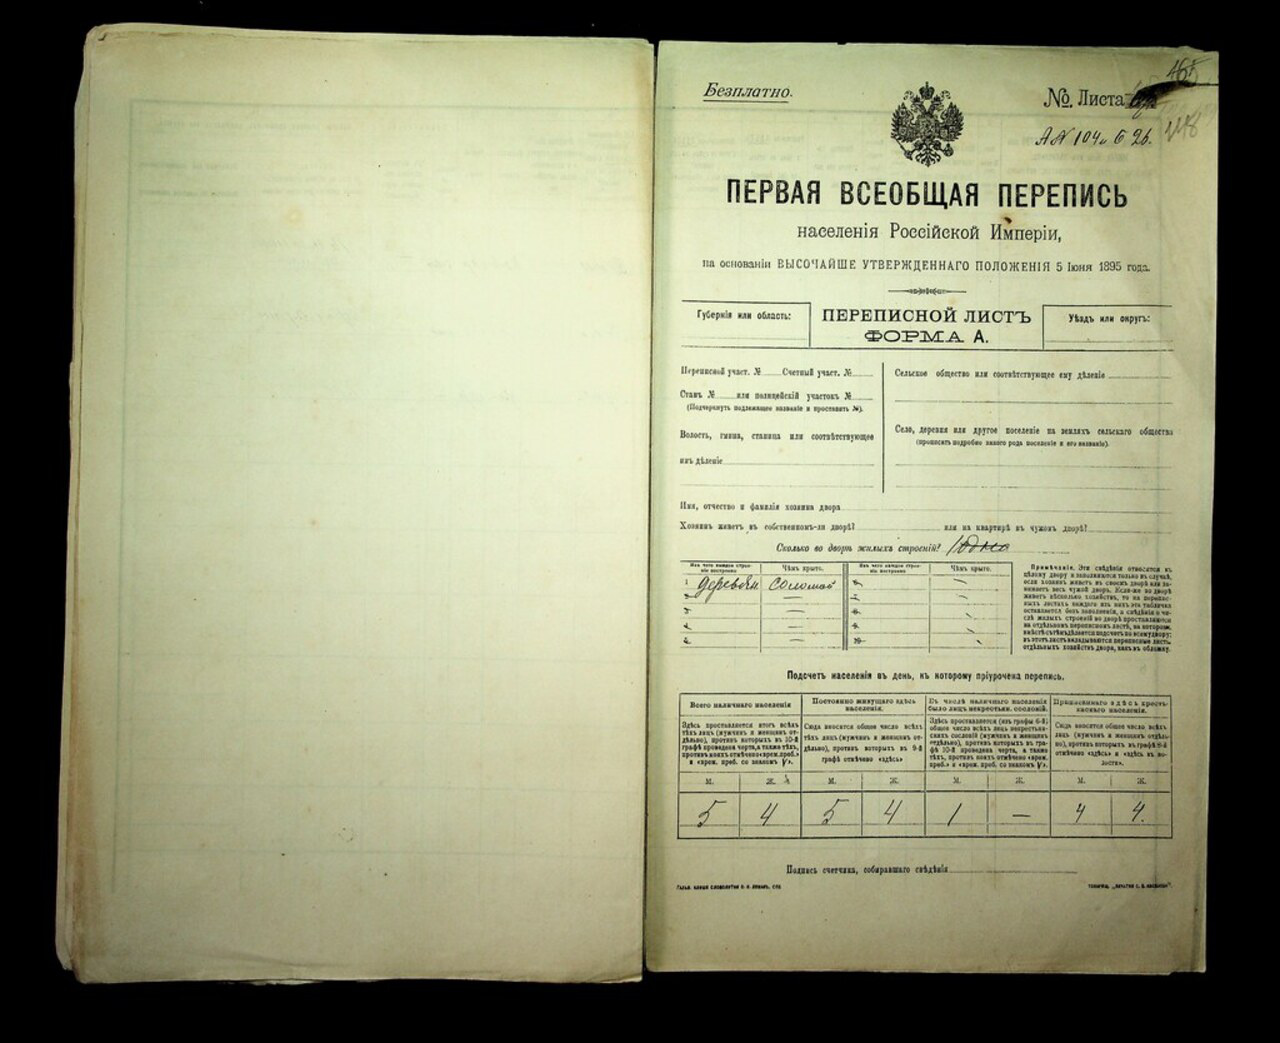 Безплатно.
№. Листа
465
А № 104 и Б 26.
ПЕРВАЯ ВСЕОБЩАЯ ПЕРЕПИСЬ
населенія Россійской Имперіи,
на основаніи ВЫСОЧАЙШЕ УТВЕРЖДЕННАГО ПОЛОЖЕНІЯ 5 Іюня 1895 года.
Губернія или область:
ПЕРЕПИСНОЙ ЛИСТЪ
ФОРМА А.
Уѣздъ или округъ:
Переписной участ. № Счетный участ. №
Станъ № или полицейскій участокъ №
(Подчеркнуть подлежащее названіе и проставить №).
Волость, гмина, станица или соотвѣтствующее
имъ дѣленіе
Сельское общество или соотвѣтствующее ему дѣленіе
Село, деревня или другое поселеніе на земляхъ сельскаго общества
(прописать подробно какого рода поселеніе и его названіе).
Имя, отчество и фамилія хозяина двора
Хозяинъ живетъ въ собственномъ-ли дворѣ? или на квартирѣ въ чужом дворѣ?
Сколько во дворѣ жилыхъ строеній? 1 одно
Изъ чего каждое строеніе построено
Чѣмъ крыто.
Изъ чего каждое строеніе построено
Чѣмъ крыто.
1 деревян. соломой
Примѣчаніе. Эти свѣдѣнія относятся къ
цѣлому двору и заполняются только въ случаѣ,
если хозяинъ живетъ въ своемъ дворѣ или за-
нимаетъ весь чужой дворъ. Если-же во дворѣ
живетъ нѣсколько хозяйствъ, то на перепис-
ныхъ листахъ каждаго изъ нихъ эта табличка
оставляется безъ заполненія, а свѣдѣнія о чи-
слѣ жилыхъ строеній во дворѣ проставляются
на отдѣльномъ переписномъ листѣ, на которомъ
вмѣстѣ съ тѣмъ дѣлается подсчетъ по всему двору;
въ этотъ листъ вкладываются переписные листы
отдѣльныхъ хозяйствъ двора, какъ въ обложку.
Подсчетъ населенія въ день, къ которому пріурочена перепись.
Всего наличнаго населенія
Здѣсь проставляется итогъ всѣхъ
тѣхъ лицъ (мужчинъ и женщинъ от-
дѣльно), противъ которыхъ въ 10-й
графѣ проведена черта, а также тѣхъ,
противъ коихъ отмѣчено «врем. проб.»
и «врем. проб. со знакомъ V».
Постоянно живущаго здѣсь
населенія.
Сюда вносится общее число всѣхъ
тѣхъ лицъ (мужчинъ и женщинъ от-
дѣльно), противъ которыхъ въ 9-й
графѣ отмѣчено «здѣсь»
Въ числѣ наличнаго населенія
было лицъ некрестьянск. сословій.
Здѣсь проставляется (изъ графы 6-й)
общее число всѣхъ лицъ некрестьян-
скихъ сословій (мужчинъ и женщинъ
отдѣльно), противъ которыхъ въ гра-
фѣ 10-й проведена черта, а также
тѣхъ, противъ коихъ отмѣчено «врем.
проб.» и «врем. проб. со знакомъ V».
Приписаннаго здѣсь кресть-
янскаго населенія.
Сюда вносится общее число всѣхъ
лицъ (мужчинъ и женщинъ отдѣль-
но), противъ которыхъ въ графѣ 8-й
отмѣчено «здѣсь» и «здѣсь въ во-
лости».
м. ж. м. ж. м. ж. м. ж.
5 4 5 4 1 — 4 4.
Подпись счетчика, собиравшаго свѣдѣнія